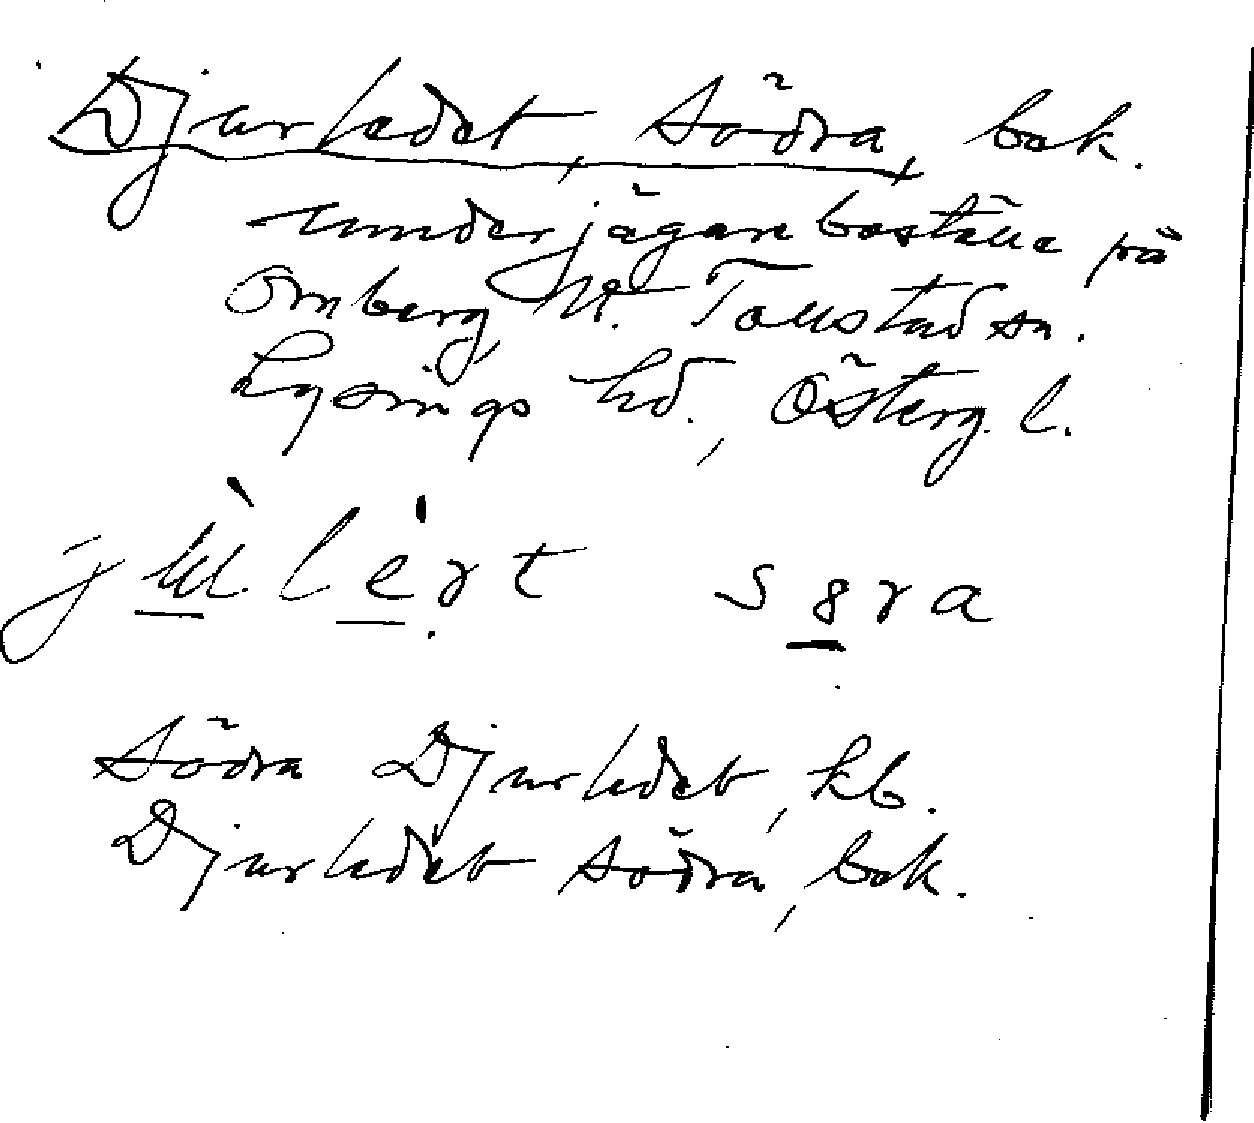 Djurledet, Södra, bek.
underjägareboställe på
Omberg, V. Tollstad sn.
Lysings hd., Österg. l.
södra Djurledet, kb.
Djurledet södra, bek.